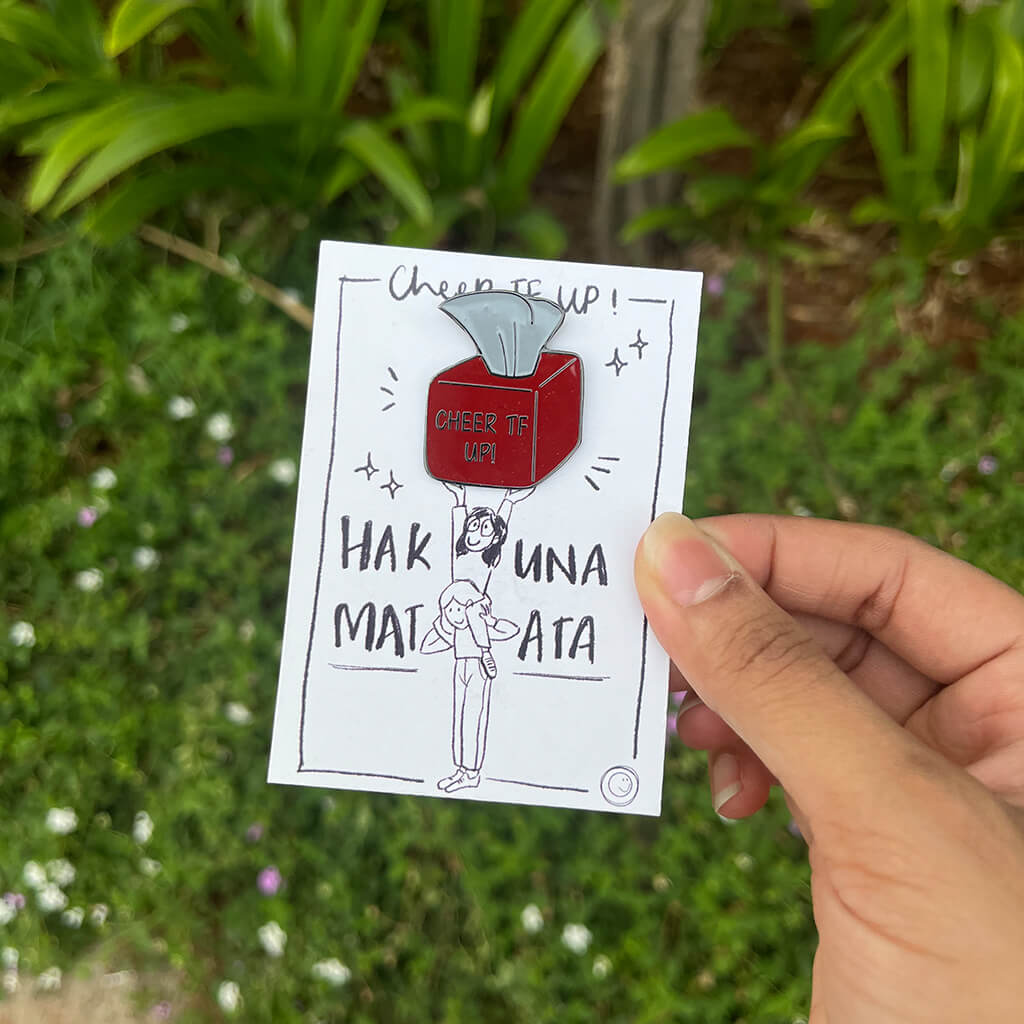 Cheer TF UP!
CHEER TF
UP!
HAKUNA
MATATA